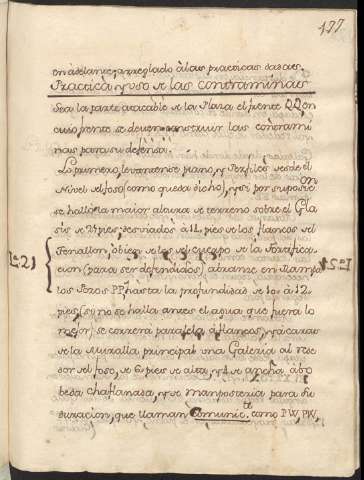 197
en adelante, arreglado à las practicas dadas.
Practica, y uso de las contraminas
Sea la parte atacable de la Plaza el frente QQ, en
cuio frente se deven construir las contrami
nas para su defensa.
Lo primero, levantense plano, y Perfiles desde el
Nivel del foso (como queda dicho), y si por suposicion
se halla la maior altura de terreno sobre el Gla
sis de 25 pies: desviados à 12 pies de los flancos del
Tenallon, ò bien de los del cuerpo de la Fortifica-
cion (para ser defendidos) abranse en
los Pozos PP, hasta la profundidad de 10 à 12
pies (si no se halla antes el agua que fuera lo
mejor) se correrà paralela à flancos, y à caras
de la Muralla principal una Galeria al rese
dor del foso, de 6 pies de alta, y 4 de ancha, à bo
beda chaflanada, y de manposteria para su
duracion, que llaman Comunic.te como PW, PW,